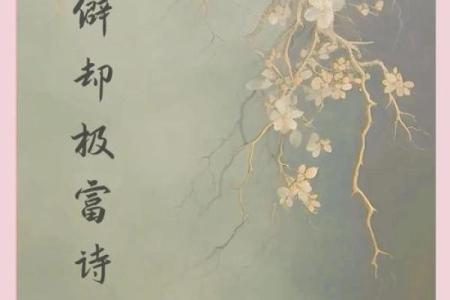 僻却极富诗